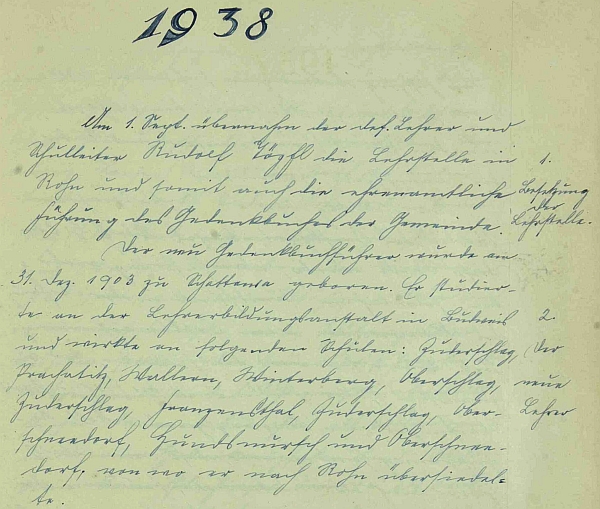 1938
Am 1. Sept. übernahm der def. Lehrer und
Schulleiter Rudolf die Lehrstelle in
Rohn und somit auch die ehrenamtliche
Führung des Gedenkbuches der Gemeinde.
1.
Besetzung
der
Lehrstelle.
Der neue Gedenkbuchführer wurde am
31. Dez. 1903 zu Schattawa geboren. Er studier-
te an der Lehrerbildungsanstalt in Budweis
und wirkte an folgenden Schulen: Zuderschlag,
Prachatitz, Wallern, Winterberg, Oberschlag,
Zuderschlag, Franzensthal, Zuderschlag, Ober-
schneedorf, Hundsnursch und Oberschnee-
dorf, von wo er nach Rohn übersiedel-
te.
2.
Der
neue
Lehrer